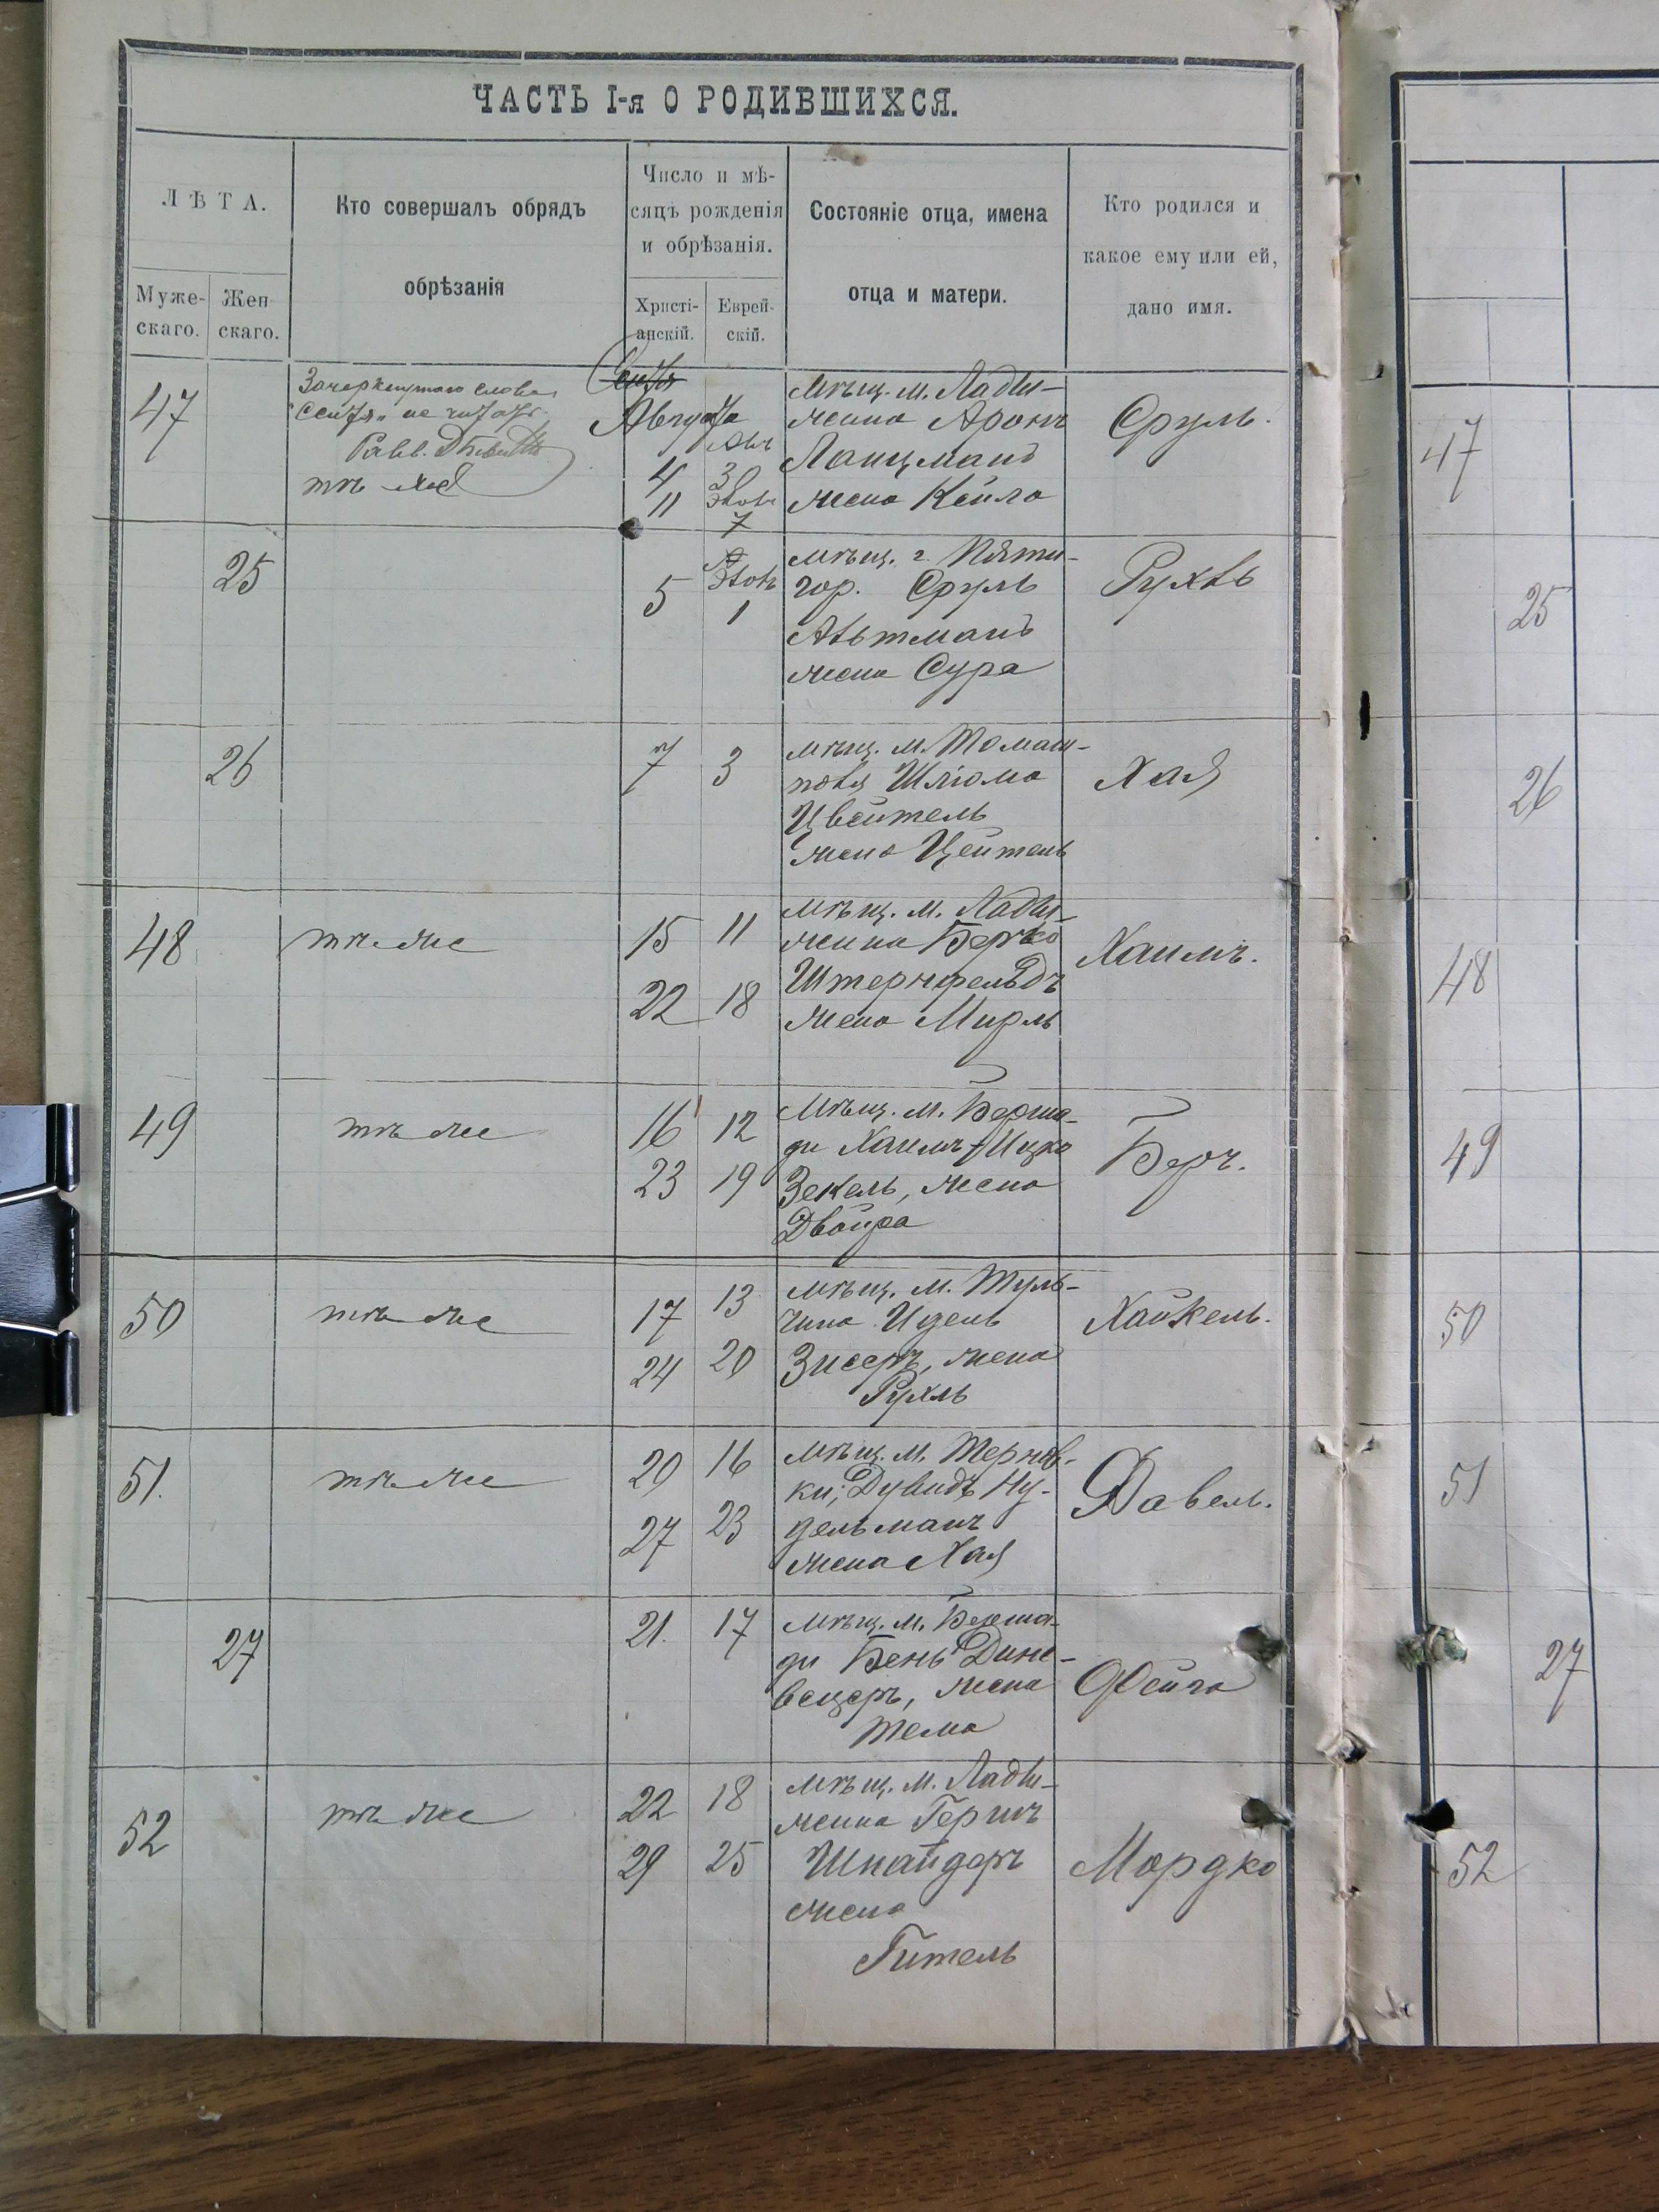 ЧАСТЬ I-я О РОДИВШИХСЯ.
ЛѢТА.
Муже-
скаго.
Жен-
скаго.
Кто совершалъ обрядъ
обрѣзанія
Число и мѣ-
сяцъ рожденія
и обрѣзанія.
Христі-
анскій.
Еврей-
скій.
Состояніе отца, имена
отца и матери.
Кто родился и
какое ему или ей,
дано имя.
47
Зачеркнутаго слова
"Сентя" не читать.
Равв.
тѣ же
Сентя
Августа
4
11
Авъ
30
Элюль
7
мѣщ. м. Лады-
жина Аронъ
Ланцманъ
жена Кейла
Сруль.
47
25
5
Элюль
1
мѣщ. г. Пяти-
гор. Сруль
Альтманъ
жена Сура
Рухль
25
26
7
3
мѣщ. м. Томаш-
поля Шліома
Цвейтель
жена Цейтель
Хая
26
48
тѣ же
15 11
22 18
мѣщ. м. Лады-
жина Берко
Штернфельдъ
жена Мирль
Хаимъ.
48
49
тѣ же
16 12
23 19
мѣщ. м. Берша-
ди Хаимъ-Ицко
Зекель, жена
Двойра
Беръ.
49
50
тѣ же
17 13
24 20
мѣщ. м. Туль-
чина Идель
Зисеръ, жена
Рухль
Хайкель.
50
51.
тѣ же
20 16
27 23
мѣщ. м. Тернов-
ки; Дувидъ Ну-
дельманъ
жена Хая
Фавель.
51
27
21. 17
мѣщ. м. Берша-
ди Бень
жена
Тема
Фейга
27
52
тѣ же
22 18
29 25
мѣщ. м. Лады-
жина Гершъ
Шнайдеръ
жена
Гитель
Мордко
52